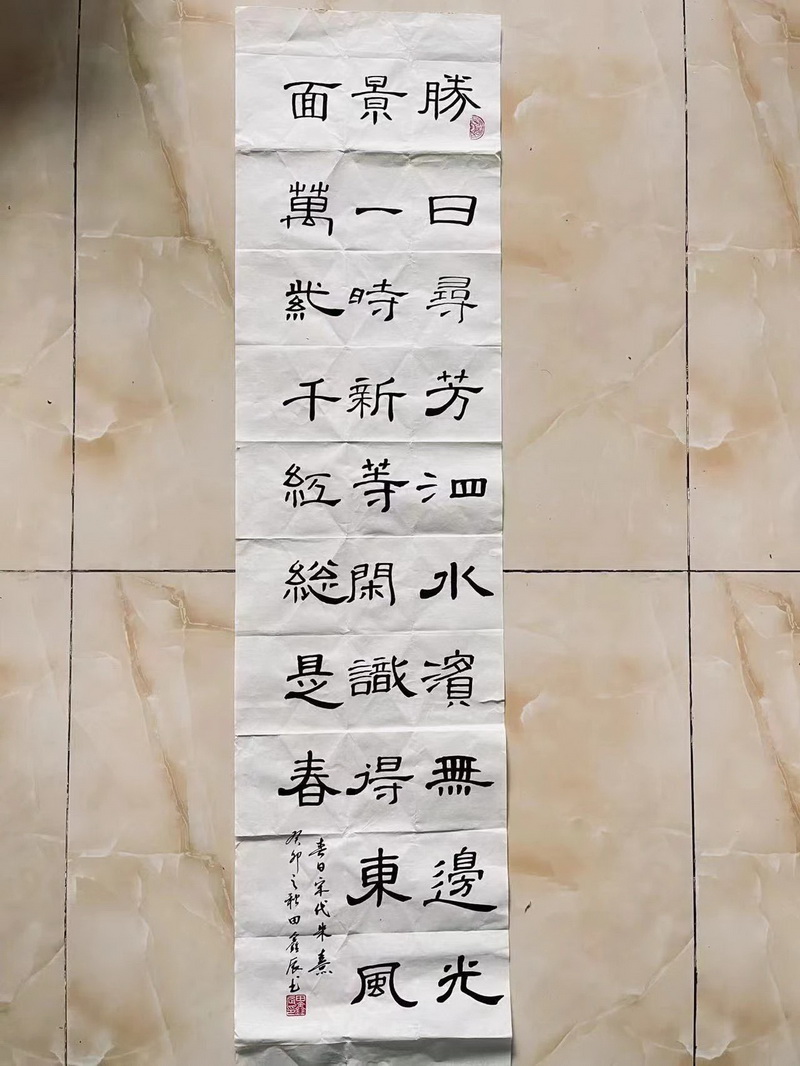 勝日尋芳泗水濱無邊光
景一時新等閑識得東風
面萬紫千紅総是春
春日宋代朱熹
癸卯之秋田鑫辰书